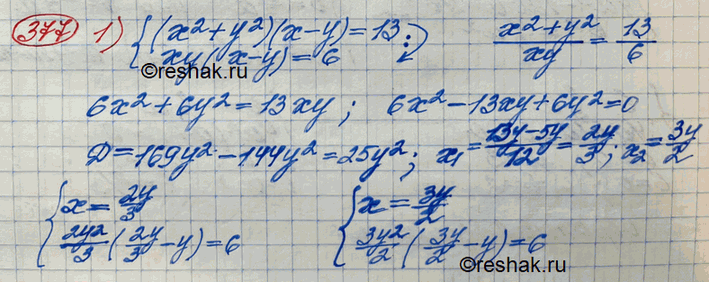 377 1) { (x²+y²)(x-y)=13 :) (x²+y²)/(xy) = 13/6
xy(x-y)=6
©reshak.ru
6x²+6y²=13xy; 6x²-13xy+6y²=0
D=169y²-144y²=25y²; x₁=(13y-5y)/12=2y/3; x₂=3y/2
{ x=2y/3 { x=3y/2
2y²/3(2y/3-y)=6 3y²/2(3y/2-y)=6
©reshak.ru